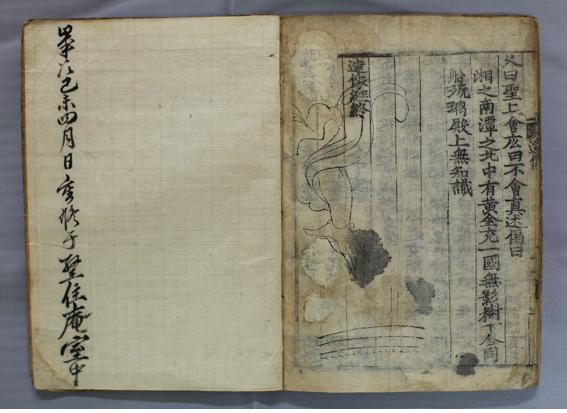 曰聖上會应曰不會真述偈曰
湘之南潭之北中有黄金充一國無影樹下合同
船琉璃殿上無知識
造像經終
己未四月日重修于聖住庵室中